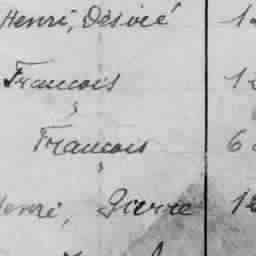 Henri, Désiré 1
Francois 12
Francois 6
Henri, Pierre 12